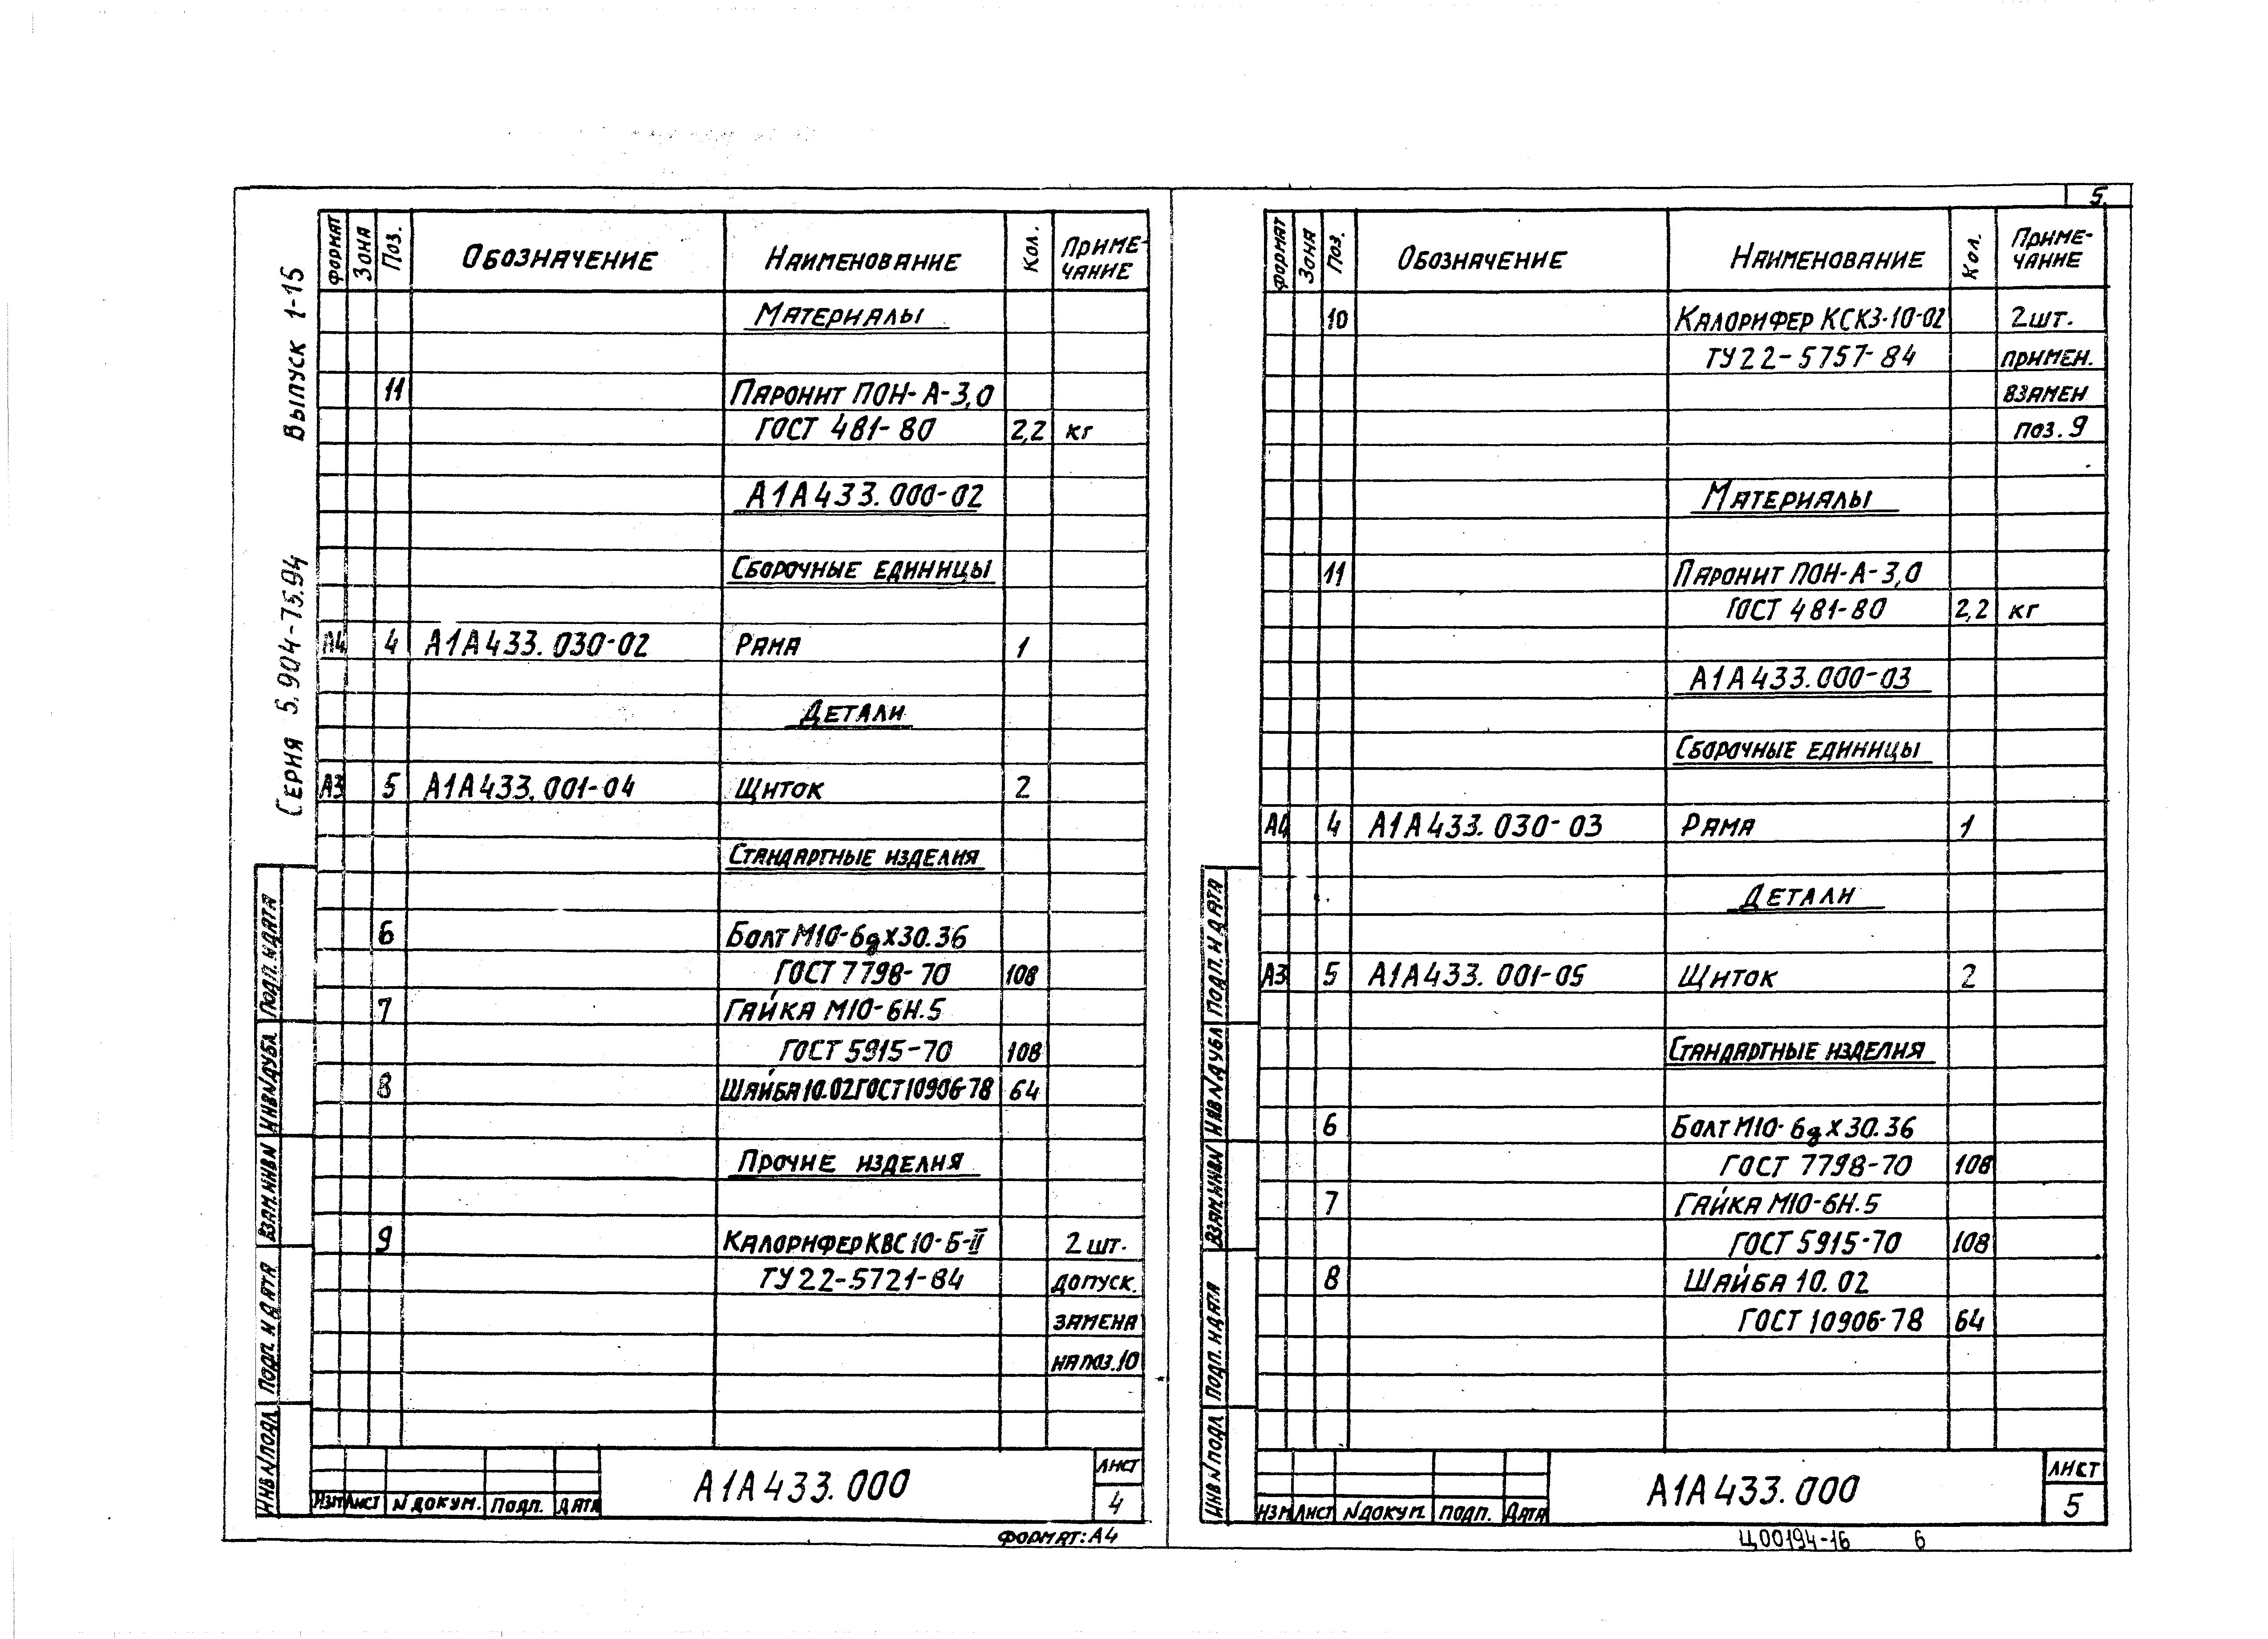 Серия 5.904-75.94 Выпуск 1-15
Формат Зона Поз. Обозначение Наименование Кол. Приме-
чание
Материалы
11 Паронит ПОН-А-3,0
ГОСТ 481-80 2,2 кг
А1А433.000-02
Сборочные единицы
А4 4 А1А433.030-02 Рама 1
Детали
А3 5 А1А433.001-04 Щиток 2
Стандартные изделия
6 Болт М10-6gх30.36
ГОСТ 7798-70 108
7 Гайка М10-6Н.5
ГОСТ 5915-70 108
8 Шайба 10.02 ГОСТ 10906-78 64
Прочие изделия
9 Калорифер КВС 10-Б-II 2 шт.
ТУ 22-5721-84 допуск.
замена
на поз.10
Инв N подл. Подп. и дата Взам. инв N Инв N дубл. Подп. и дата
Изм Лист N докум. Подп. Дата
А1А433.000
Лист
4
Формат: А4
5
Формат Зона Поз. Обозначение Наименование Кол. Приме-
чание
10 Калорифер КСК3-10-02 2 шт.
ТУ 22-5757-84 примен.
взамен
поз. 9
Материалы
11 Паронит ПОН-А-3,0
ГОСТ 481-80 2,2 кг
А1А433.000-03
Сборочные единицы
А4 4 А1А433.030-03 Рама 1
Детали
А3 5 А1А433.001-05 Щиток 2
Стандартные изделия
6 Болт М10-6gх30.36
ГОСТ 7798-70 108
7 Гайка М10-6Н.5
ГОСТ 5915-70 108
8 Шайба 10.02
ГОСТ 10906-78 64
Инв N подл Подп. и дата Взам. инв N Инв N дубл Подп. и дата
Изм Лист N докум. Подп. Дата
А1А433.000
Лист
5
Ц00194-16 6